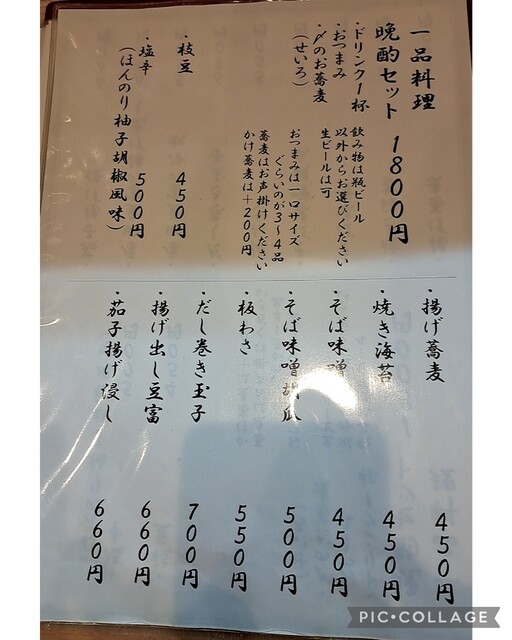 一品料理
晩酌セット 1800円
・ドリンク1杯
飲み物は瓶ビール
以外からお選びください
生ビールは可
・おつまみ
・〆のお蕎麦
(せいろ)
おつまみは一口サイズ
ぐらいのが3~4品
蕎麦はお声掛けください
かけ蕎麦は+200円
・枝豆 450円
・塩辛 500円
(ほんのり柚子胡椒風味)
・揚げ蕎麦 450円
・焼き海苔 450円
・そば味噌 450円
・そば味噌胡瓜 500円
・板わさ 550円
・だし巻き玉子 700円
・揚げ出し豆富 660円
・茄子揚げ浸し 660円
PIC・COLLAGE